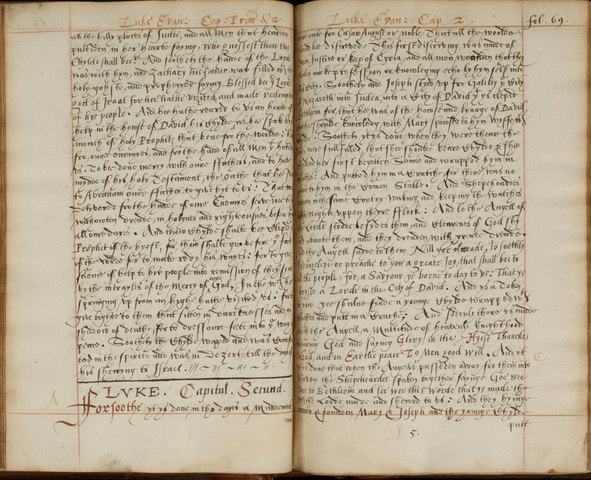 Luke Evan: Cap. Prim & 2
all the hilly places of Judee, and all Men that hearden
putteden in her hearte saying, Who guesest thou this
Chylde shall bee? And soothely the hande of the Lord
was with hym, and Zachary his father was filled wth
holy gost, and prophecyed saying Blessed be ye Lord
God of Israel for hee hathe visited, and made redempcon
of his people. And hee hathe rered to us an horne of
help in the house of David his Chylde, as hee spake by
mouth of holy Prophets that bene fro the worlde:
fro oure enemyes, and fro the hande of all Men that
To be done mercy with oure ffathers, and to have
mynde of his holy Testament, the oathe that hee swore
to Abraham oure ffather to give hyt to us: That
delyvered fro the hande of oure Enemyes serve
withouten dreade, in holynes and rightousnes before
all oure dayes. And thou Chylde shalte bee cleped
Prophet of the hyest, for thou shalte goe before ye face
of the Lorde for to make redy his wayes: for to give
science of help to his people into remission of
by the intrayles of the Mercy of God, In the wch
springing up from an highe hathe visited us: for
give light to them that sitten in durcknesse and
shadow of deathe, for to dresse oure feete into ye way
peace. Soothely the Chylde waxed and was comforted
ted in the spirite and was in desert till the daye
his shewyng to Israel.
LVKE. Capitul. Secund.
A
Forsoothe, yt ys done in tho dayes a Mandement
Luke Evan: Cap. 2.
fol. 69.
went fro Cæsar August or noble That all the worlde
should be discrived: This first discriving was made of
Justice or kep of Cyria, and all men wenten that they
make profession or knowleging eche by hym self into
Citty. Soothely and Joseph stied up fro Galilee ye Citty
Nazareth into Judea, into a Citty of David yt ys cleped
Bethleem for that hee was of the house and lynage of David,
that hee shoulde knowledg with Mary spoused to hym Wyf
Soothely yt ys done, when they were there the
were fulfilled that shee shoulde beare chylde & shee
childed her first begotten Sonne and wrapped hym in
Clothes and putted hym in a Cratche, for there was no
place to hym in the comon Stable. And Shepeheardes
were in the same Contry waking and keeping the watches
of the night uppon there fflock: And lo the Angell of
the Lorde stoode besyde to them, and cleernes of God
aboute them, and they dredden with greate dreade
And the Angell saide to them Nill yee dreade, lo soothly
I evangelize or preache to you a greate joy, that shall bee to
all the people, for a Saviour ys borne to day to us: That ys
Criste a Lorde in the City of David. And ys a Token
to you, yee shal fynde a younge Chylde wrapped with
clothes and put in a Cratche: And sodenly there ys made
with the Angell a Multitude of heavenly knighthood
herying God and saying Glory in the Hyest Thankes
to God, and in Earthe peace To Men good will. And yt
C
ys done that when the Angels passeden away fro them into
heaven the Shepeheardes spaken together sayinge, Goe wee
over to Bethleem and see wee this Worde that ys made, the
which the Lorde made and shewed to us: And they hying
came & founden Mary & Joseph and the younge Chylde
putt
5.